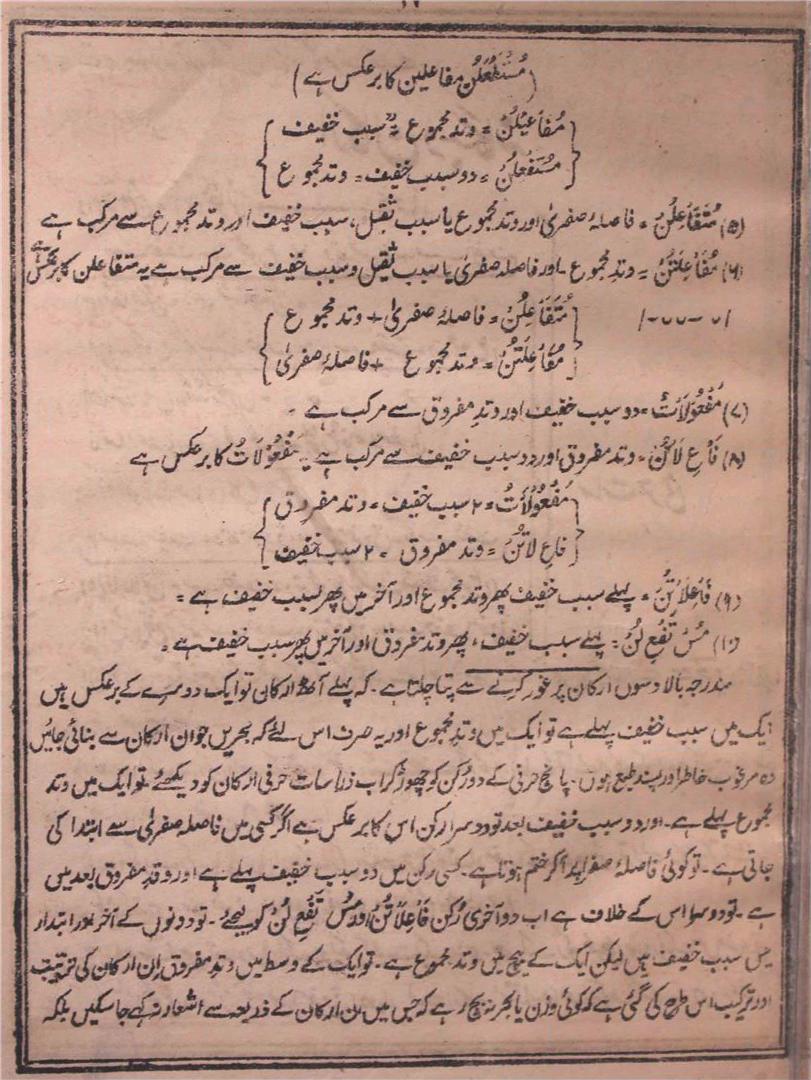 (مُسْتَفْعِلُنْ مفاعلین کا برعکس ہے)
مُفَاعِیْلُنْ = وتد مجموع = دو سبب خفیف
مُسْتَفْعِلُنْ = دو سبب خفیف = وتد مجموع
(۵) مُتَفَاعِلُنْ = فاصلۂ صغریٰ اور وتد مجموع یا سبب ثقیل، سبب خفیف اور وتد مجموع سے مرکب ہے
(۶) مُفَاعِلَتُنْ = وتدِ مجموع۔ اور فاصلہ صغریٰ یا سبب ثقیل و سبب خفیف سے مرکب ہے یہ متفاعلن کا برعکس ہے
مُتَفَاعِلُنْ = فاصلۂ صغریٰ + وتد مجموع
مُفَاعِلَتُنْ = وتد مجموع + فاصلۂ صغریٰ
(۷) مَفْعُوْلَاتُ = دو سبب خفیف اور وتدِ مفروق سے مرکب ہے ۔
(۸) فَاعِ لَاتُنْ = وتد مفروق اور دو سبب خفیف سے مرکب ہے یہ مَفْعُوْلَاتُ کا برعکس ہے
مَفْعُوْلَاتُ = ۲ سبب خفیف = وتد مفروق
فاعِ لاتُنْ = وتد مفروق = ۲ سبب خفیف
(۹) فَاعِلَاتُنْ = پہلے سبب خفیف پھر وتد مجموع اور آخر میں پھر سبب خفیف ہے =
(۱۰) مُسْ تَفْعِ لُنْ = پہلے سبب خفیف، پھر وتد مفروق اور آخر میں پھر سبب خفیف ہے ۔
مندرجہ بالا دسوں ارکان پر غور کرنے سے پتا چلتا ہے ۔ کہ پہلے آٹھ ارکان تو ایک دوسرے کے برعکس ہیں
ایک میں سبب خفیف پہلے ہے تو ایک میں وتدِ مجموع اور یہ صرف اس لئے کہ بحریں جو ان ارکان سے بنائی جائیں
وہ مرغوب خاطر اور پسند طبع ہوں۔ پانچ حرفی کے دو رُکن کو چھوڑ کر اب ذرا سات حرفی ارکان کو دیکھئے ۔ تو ایک میں وتد
مجموع پہلے ہے ۔ اور دو سبب خفیف بعد تو دوسرا رکن اس کا برعکس ہے اگر کسی میں فاصلہ صغریٰ سے ابتدا کی
جاتی ہے ۔ تو کوئی فاصلۂ صغریٰ پر آکر ختم ہوتا ہے ۔ کسی رکن میں دو سبب خفیف پہلے ہے اور وتدِ مفروق بعد میں
ہے ۔ تو دوسرا اس کے خلاف ہے اب دو آخری رُکن فَاعِلَاتُنْ اور مُسْ تَفْعِ لُنْ کو لیجئے ۔ تو دونوں کے آخر اور ابتدار
میں سبب خفیف ہیں لیکن ایک کے بیچ میں وتد مجموع ہے ۔ تو ایک کے وسط میں وتدِ مفروق اِن ارکان کی ترتیب
اور ترکیب اس طرح کی گئی ہے کہ کوئی وزن یا بحر نہ بچ رہے کہ جس میں ان ارکان کے ذریعہ سے اشعار نہ کہے جا سکیں بلکہ